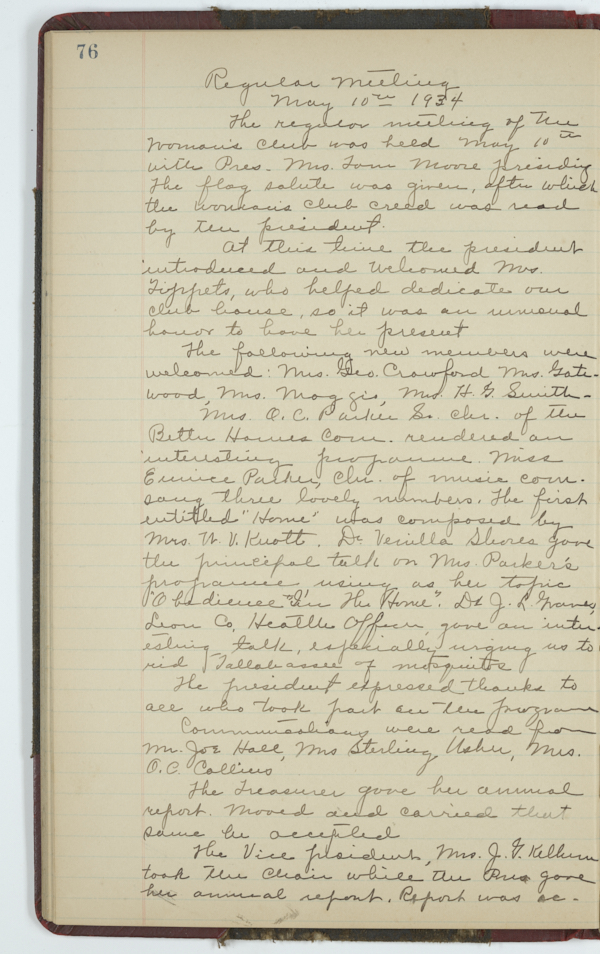 76
Regular Meeting
May 10th 1934
The regular meeting of the
Woman's Club was held May 10th
with Pres. Mrs. Tom Moore presiding
The flag salute was given, after which
the woman's club creed was read
by the president.
At this time the president
introduced and welcomed Mrs.
Tippets, who helped dedicate our
club house, so it was an unusual
honor to have her present
The following new members were
welcomed: Mrs. Geo. Crawford Mrs. Gate-
wood, Mrs. Maggio, Mrs. H. G. Smith-
Mrs. O. C. Parker Sr. chr. of the
Better Homes Com. rendered an
interesting programme. Miss
Eunice Parker, Chr. of music com.
sang three lovely numbers. The first
entitled "Home" was composed by
Mrs. W. V. Knott. Dr. Venilla Shores gave
the principal talk on Mrs. Parker's
programe using as her topic
"Obedience in The Home". Dr J. L. Graves,
Leon Co. Health Officer, gave an inter-
esting talk, especially urging us to
rid Tallahassee of mosquitos
The president expressed thanks to
all who took part on the program
Communications were read from
Mr. Joe Hall, Mrs Sterling Usher, Mrs.
O. C. Collins
The Treasurer gave her annual
report. Moved and carried that
same be accepted
The Vice president, Mrs. J. G. Kellum
took the Chair while the Pres gave
her annual report. Report was ac-